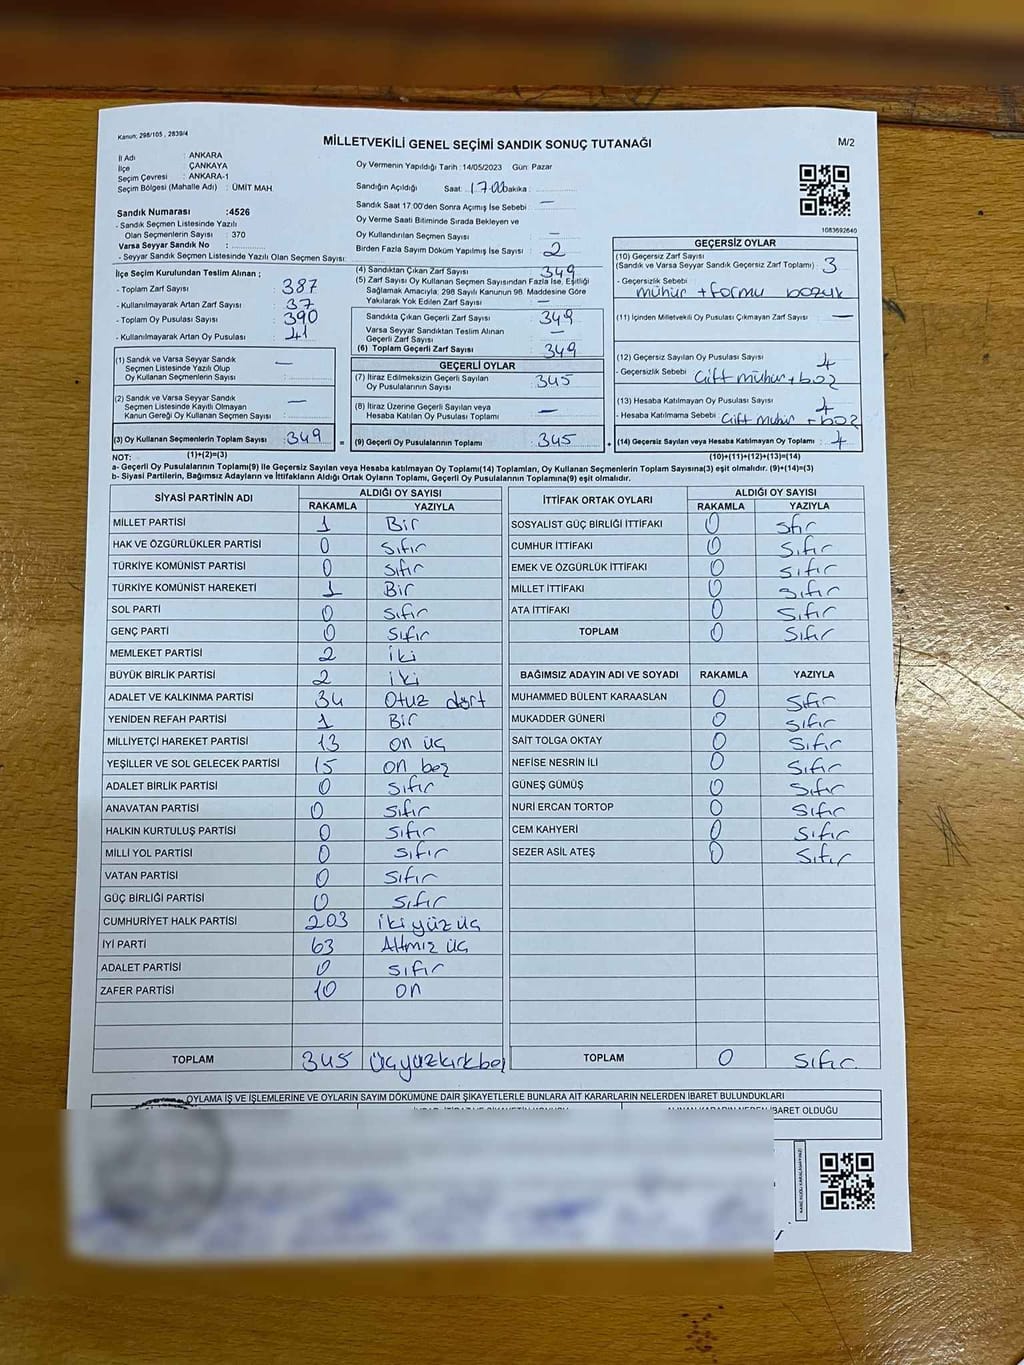 Kanun; 298/105 , 2839/4
MİLLETVEKİLİ GENEL SEÇİMİ SANDIK SONUÇ TUTANAĞI
M/2
İl Adı : ANKARA
İlçe ÇANKAYA
Seçim Çevresi : ANKARA-1
Seçim Bölgesi (Mahalle Adı) : ÜMİT MAH.
Sandık Numarası :4526
- Sandık Seçmen Listesinde Yazılı
Olan Seçmenlerin Sayısı : 370
Varsa Seyyar Sandık No :
- Seyyar Sandık Seçmen Listesinde Yazılı Olan Seçmen Sayısı:
Oy Vermenin Yapıldığı Tarih :14/05/2023 Gün: Pazar
Sandığın Açıldığı Saat: 17.00 Dakika :
Sandık Saat 17.00'den Sonra Açımış İse Sebebi : —
Oy Verme Saati Bitiminde Sırada Bekleyen ve
Oy Kullandırılan Seçmen Sayısı : —
Birden Fazla Sayım Döküm Yapılmış İse Sayısı : 2
1083692640
İlçe Seçim Kurulundan Teslim Alınan ;
- Toplam Zarf Sayısı : 387
- Kullanılmayarak Artan Zarf Sayısı : 37
- Toplam Oy Pusulası Sayısı : 390
- Kullanılmayarak Artan Oy Pusulası : 41
(1) Sandık ve Varsa Seyyar Sandık
Seçmen Listesinde Yazılı Olup
Oy Kullanan Seçmenlerin Sayısı : —
(2) Sandık ve Varsa Seyyar Sandık
Seçmen Listesinde Kayıtlı Olmayan
Kanun Gereği Oy Kullanan Seçmen Sayısı : —
(3) Oy Kullanan Seçmenlerin Toplam Sayısı : 349
(4) Sandıktan Çıkan Zarf Sayısı : 349
(5) Zarf Sayısı Oy Kullanan Seçmen Sayısından Fazla İse, Eşitliği
Sağlamak Amacıyla; 298 Sayılı Kanunun 98. Maddesine Göre
Yakılarak Yok Edilen Zarf Sayısı : —
Sandıkta Çıkan Geçerli Zarf Sayısı : 349
Varsa Seyyar Sandıktan Teslim Alınan
Geçerli Zarf Sayısı : —
(6) Toplam Geçerli Zarf Sayısı : 349
GEÇERLİ OYLAR
(7) İtiraz Edilmeksizin Geçerli Sayılan
Oy Pusulalarının Sayısı : 345
(8) İtiraz Üzerine Geçerli Sayılan veya
Hesaba Katılan Oy Pusulası Sayısı : —
= (9) Geçerli Oy Pusulalarının Toplamı : 345 +
GEÇERSİZ OYLAR
(10) Geçersiz Zarf Sayısı
(Sandık ve Varsa Seyyar Sandık Geçersiz Zarf Toplamı) : 3
- Geçersizlik Sebebi :
mühür + formu bozuk
(11) İçinden Milletvekili Oy Pusulası Çıkmayan Zarf Sayısı : —
(12) Geçersiz Sayılan Oy Pusulası Sayısı : 4
- Geçersizlik Sebebi : Çift mühür + boz
(13) Hesaba Katılmayan Oy Pusulası Sayısı : 4
- Hesaba Katılmama Sebebi : Çift mühür + boz
(14) Geçersiz Sayılan veya Hesaba Katılmayan Oy Toplamı : 4
NOT: (1)+(2)=(3) (10)+(11)+(12)+(13)=(14)
a- Geçerli Oy Pusulalarının Toplamı(9) İle Geçersiz Sayılan veya Hesaba katılmayan Oy Toplamı(14) Toplamları, Oy Kullanan Seçmenlerin Toplam Sayısına(3) eşit olmalıdır. (9)+(14)=(3)
b- Siyasi Partilerin, Bağımsız Adayların ve İttifakların Aldığı Ortak Oyların Toplamı, Geçerli Oy Pusulalarının Toplamına(9) eşit olmalıdır.
SİYASİ PARTİNİN ADI ALDIĞI OY SAYISI
RAKAMLA YAZIYLA
MİLLET PARTİSİ 1 Bir
HAK VE ÖZGÜRLÜKLER PARTİSİ 0 Sıfır
TÜRKİYE KOMÜNİST PARTİSİ 0 Sıfır
TÜRKİYE KOMÜNİST HAREKETİ 1 Bir
SOL PARTİ 0 Sıfır
GENÇ PARTİ 0 Sıfır
MEMLEKET PARTİSİ 2 iki
BÜYÜK BİRLİK PARTİSİ 2 iki
ADALET VE KALKINMA PARTİSİ 34 Otuz dört
YENİDEN REFAH PARTİSİ 1 Bir
MİLLİYETÇİ HAREKET PARTİSİ 13 on üç
YEŞİLLER VE SOL GELECEK PARTİSİ 15 on beş
ADALET BİRLİK PARTİSİ 0 Sıfır
ANAVATAN PARTİSİ 0 Sıfır
HALKIN KURTULUŞ PARTİSİ 0 Sıfır
MİLLİ YOL PARTİSİ 0 Sıfır
VATAN PARTİSİ 0 Sıfır
GÜÇ BİRLİĞİ PARTİSİ 0 Sıfır
CUMHURİYET HALK PARTİSİ 203 iki yüz üç
İYİ PARTİ 63 Altmış üç
ADALET PARTİSİ 0 Sıfır
ZAFER PARTİSİ 10 on
TOPLAM 345 Üçyüzkırkbeş
İTTİFAK ORTAK OYLARI ALDIĞI OY SAYISI
RAKAMLA YAZIYLA
SOSYALİST GÜÇ BİRLİĞİ İTTİFAKI 0 sıfır
CUMHUR İTTİFAKI 0 Sıfır
EMEK VE ÖZGÜRLÜK İTTİFAKI 0 Sıfır
MİLLET İTTİFAKI 0 Sıfır
ATA İTTİFAKI 0 Sıfır
TOPLAM 0 Sıfır
BAĞIMSIZ ADAYIN ADI VE SOYADI RAKAMLA YAZIYLA
MUHAMMED BÜLENT KARAASLAN 0 Sıfır
MUKADDER GÜNERİ 0 Sıfır
SAİT TOLGA OKTAY 0 Sıfır
NEFİSE NESRİN İLİ 0 Sıfır
GÜNEŞ GÜMÜŞ 0 Sıfır
NURİ ERCAN TORTOP 0 Sıfır
CEM KAHYERİ 0 Sıfır
SEZER ASİL ATEŞ 0 Sıfır
TOPLAM 0 Sıfır
OYLAMA İŞ VE İŞLEMLERİNE VE OYLARIN SAYIM DÖKÜMÜNE DAİR ŞİKAYETLERLE BUNLARA AİT KARARLARIN NELERDEN İBARET BULUNDUKLARI
İBARET OLDUĞU